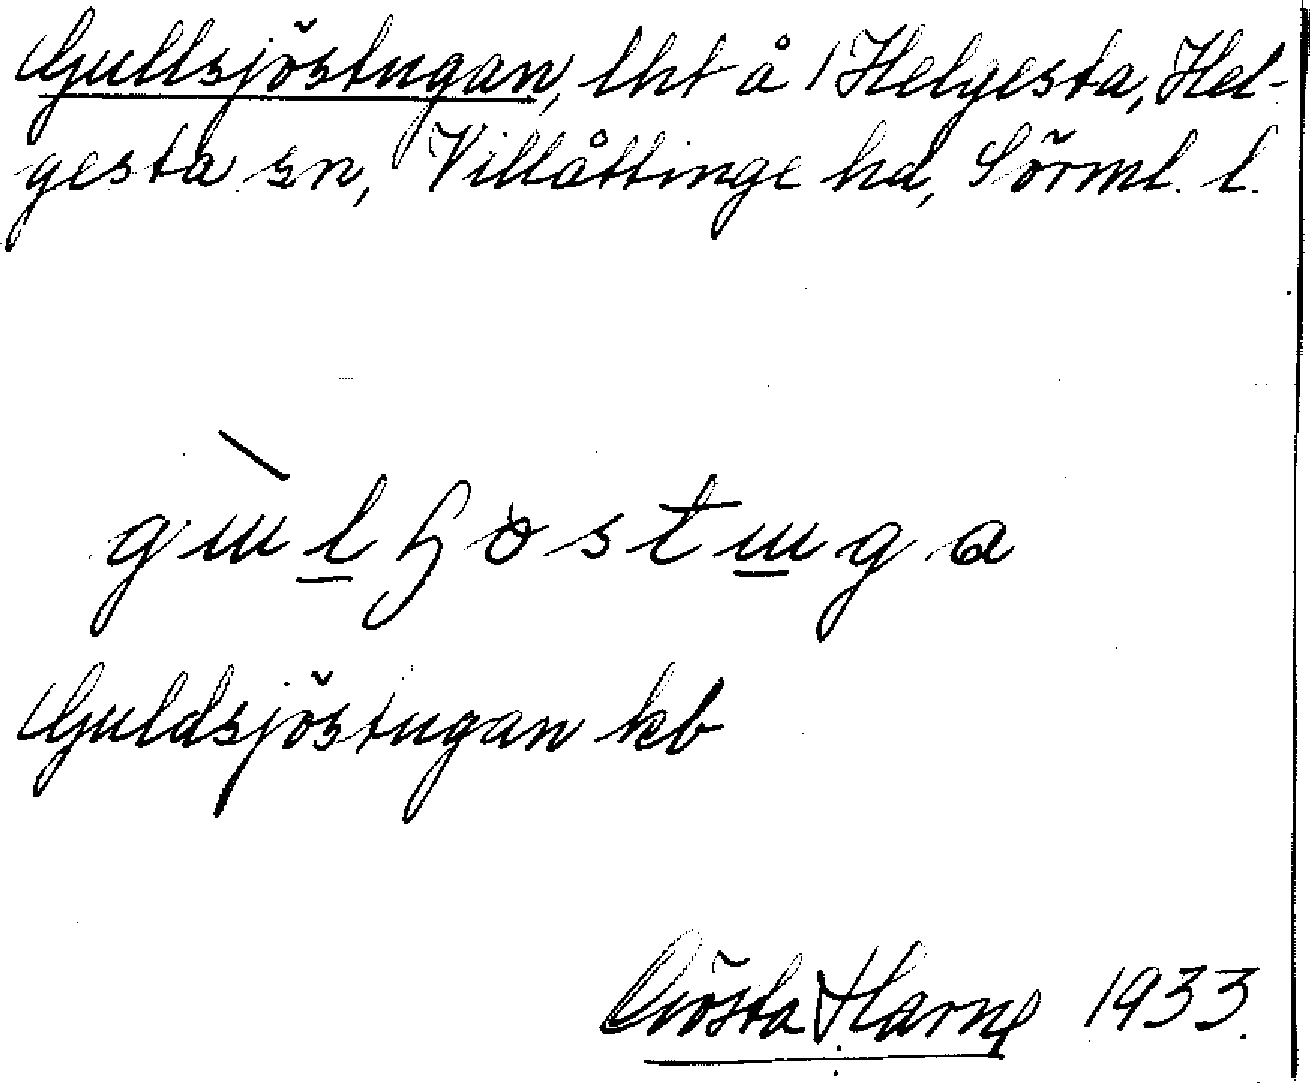 Gullsjöstugan, lht å /Helgesta, Hel-
gesta sn, Villåttinge hd, Sörml. l.
Guldsjöstugan kb
Gösta Harne 1933.